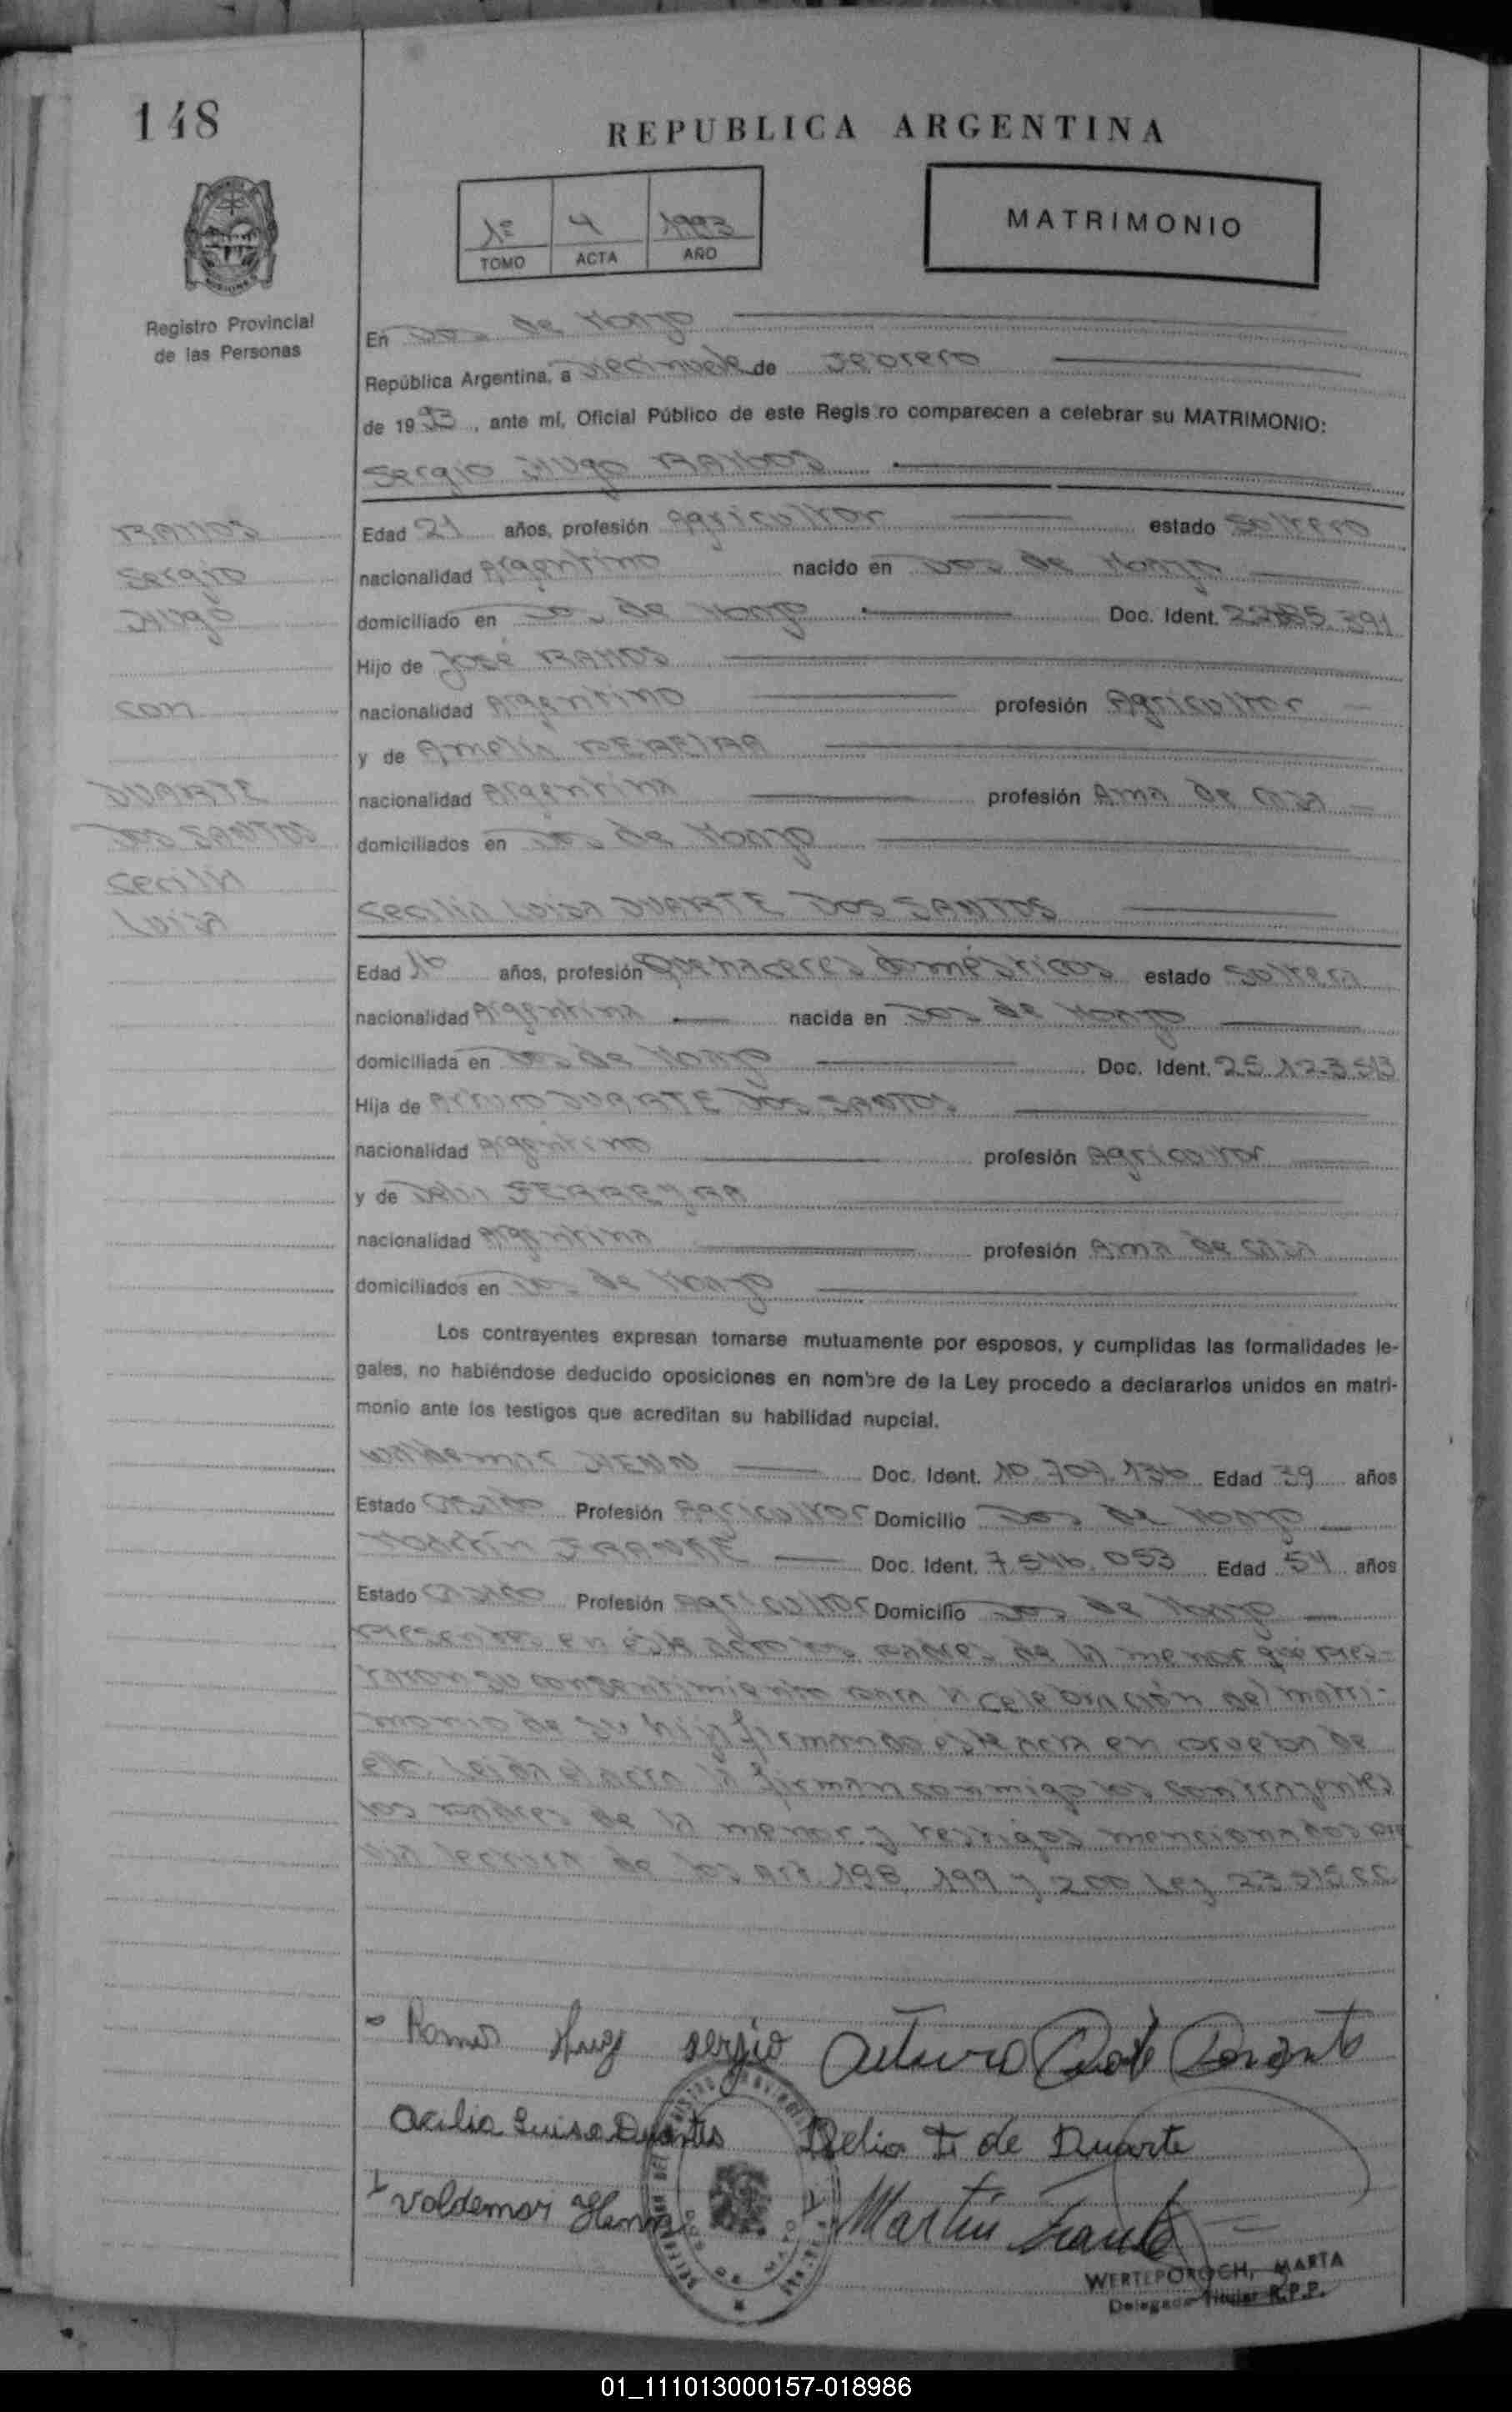 148
REPUBLICA ARGENTINA
1º 4 1993
TOMO ACTA AÑO
MATRIMONIO
Registro Provincial
de las Personas
En Dos de Mayo
República Argentina, a Diecinueve de Febrero
de 1993, ante mí, Oficial Público de este Registro comparecen a celebrar su MATRIMONIO:
Sergio Hugo RAMOS
RAMOS
Sergio
Hugo
con
DUARTE
DOS SANTOS
Cecilia
Luisa
Edad 21 años, profesión Agricultor estado Soltero
nacionalidad Argentino nacido en Dos de Mayo
domiciliado en Dos de Mayo Doc. Ident.
Hijo de José RAMOS
nacionalidad Argentino profesión Agricultor
y de Amelia PEREIRA
nacionalidad Argentina profesión Ama de casa
domiciliados en Dos de Mayo
Cecilia Luisa DUARTE DOS SANTOS
Edad 16 años, profesión Quehaceres domésticos estado Soltera
nacionalidad Argentina nacida en Dos de Mayo
domiciliada en Dos de Mayo Doc. Ident. 25.123.513
Hija de Arturo DUARTE DOS SANTOS
nacionalidad Argentino profesión Agricultor
y de Delia FERREYRA
nacionalidad Argentina profesión Ama de casa
domiciliados en Dos de Mayo
Los contrayentes expresan tomarse mutuamente por esposos, y cumplidas las formalidades le-
gales, no habiéndose deducido oposiciones en nombre de la Ley procedo a declararlos unidos en matri-
monio ante los testigos que acreditan su habilidad nupcial.
Waldemar HENN Doc. Ident. 10.707.136 Edad 39 años
Estado Casado Profesión Agricultor Domicilio Dos de Mayo
Martín FRANKE Doc. Ident. 7.546.053 Edad 54 años
Estado Casado Profesión Agricultor Domicilio Dos de Mayo
presentes en éste acto los padres de la menor que pres-
taron su consentimiento para la celebración del matri-
monio de su hija firmando éste acta en prueba de
ello. Leída el acta la firman conmigo los contrayentes
los padres de la menor y testigos mencionados
lectura de los Art. 198, 199 y 200 Ley 23.515
Ramos Hugo sergio Arturo
Cecilia Luisa Duartes Delia F. de Duarte
Valdemar Henn Martin Franke
WERTEPOROCH, MARTA
Delegada Titular R.P.P.
01_111013000157-018986